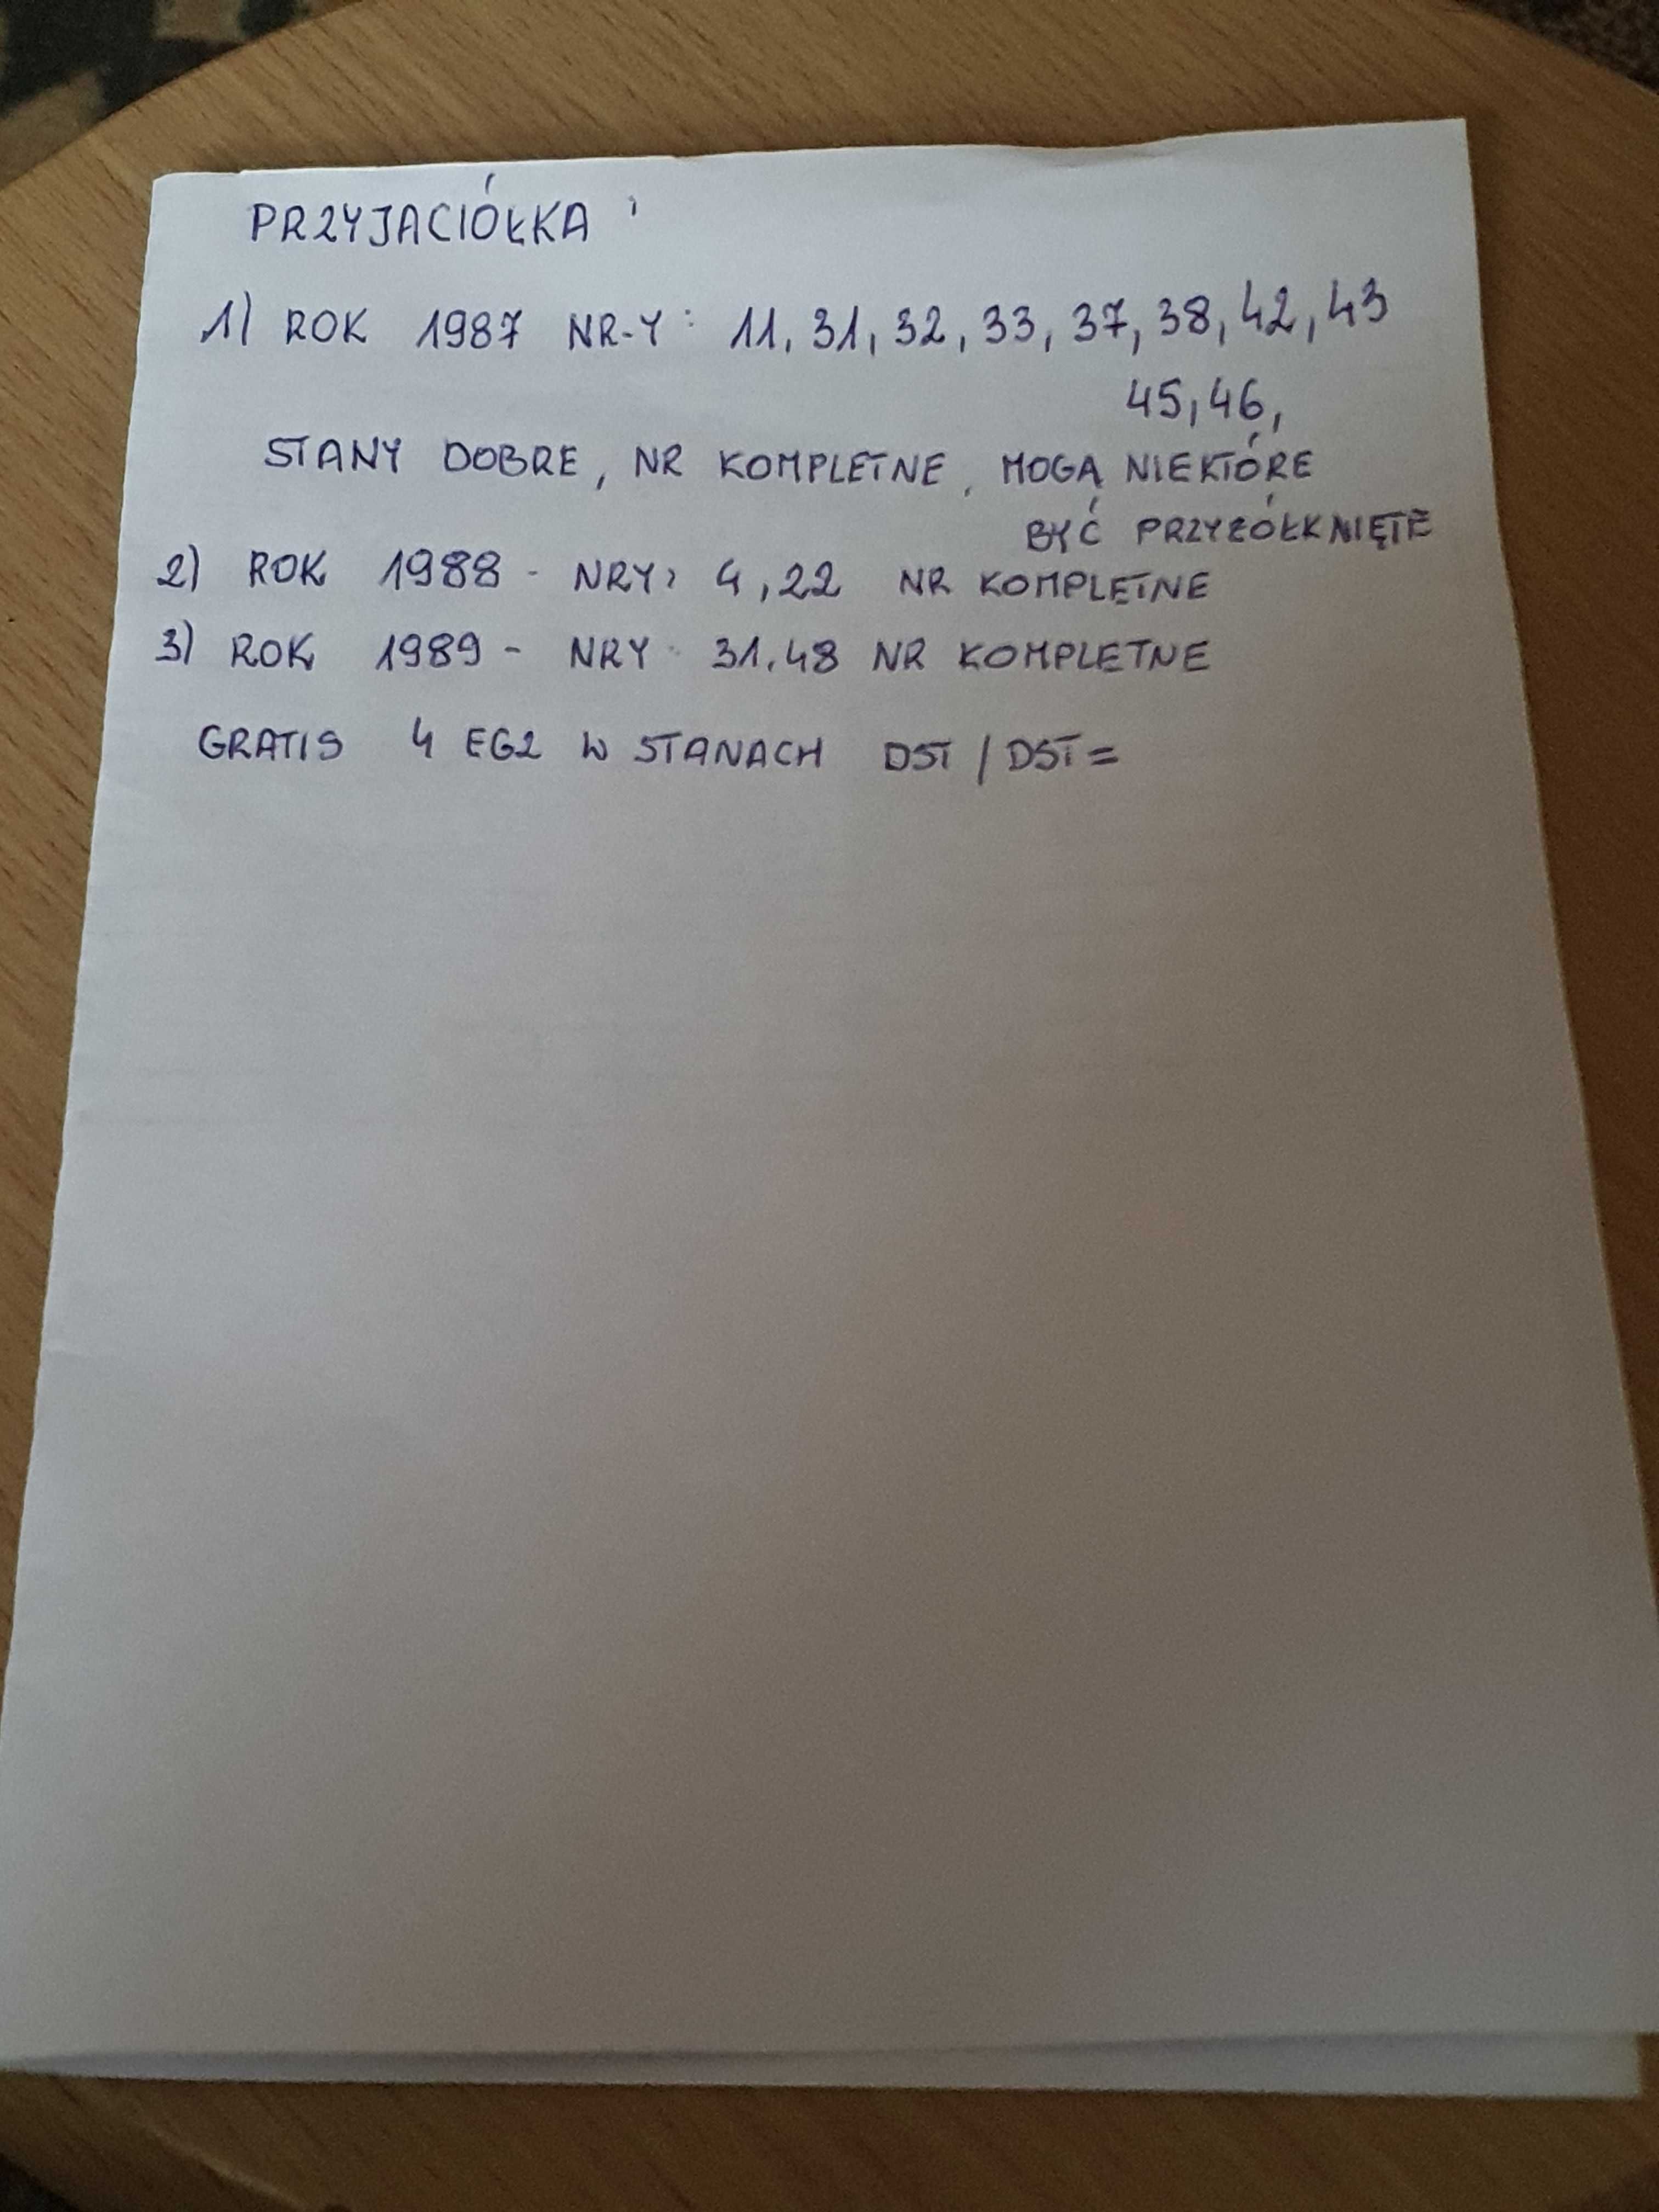 PRZYJACIÓŁKA
1) ROK 1987 NR-Y: 11, 31, 32, 33, 37, 38, 42, 43
45, 46,
STANY DOBRE, NR KOMPLETNE, MOGĄ NIEKTÓRE
BYĆ PRZYŻÓŁKNIĘTE
2) ROK 1988 - NRY: 4, 22 NR KOMPLETNE
3) ROK 1989 - NRY 31.48 NR KOMPLETNE
GRATIS 4 EGZ W STANACH DST / DST=